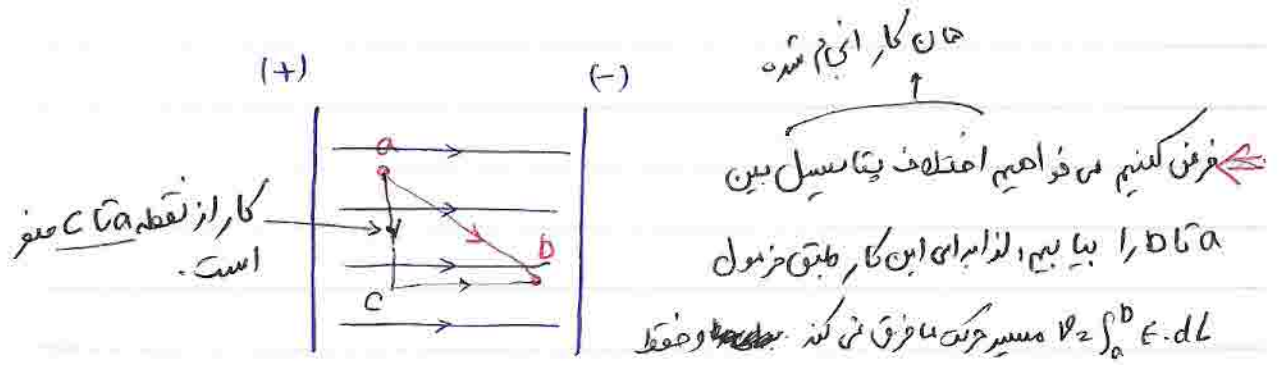 همان کار انجام شده
(+) (-)
فرض کنیم می خواهیم اختلاف پتانسیل بین
a تا b را بیابیم، لذا برای این کار طبق فرمول
V = ∫ₐᵇ E.dL مسیر حرکت ما فرق نمی کند و فقط
a
b
c
کار از نقطه a تا c صفر
است.